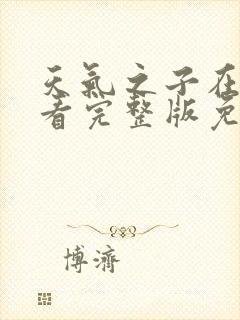 天氣之子在
看完整版免
博濟